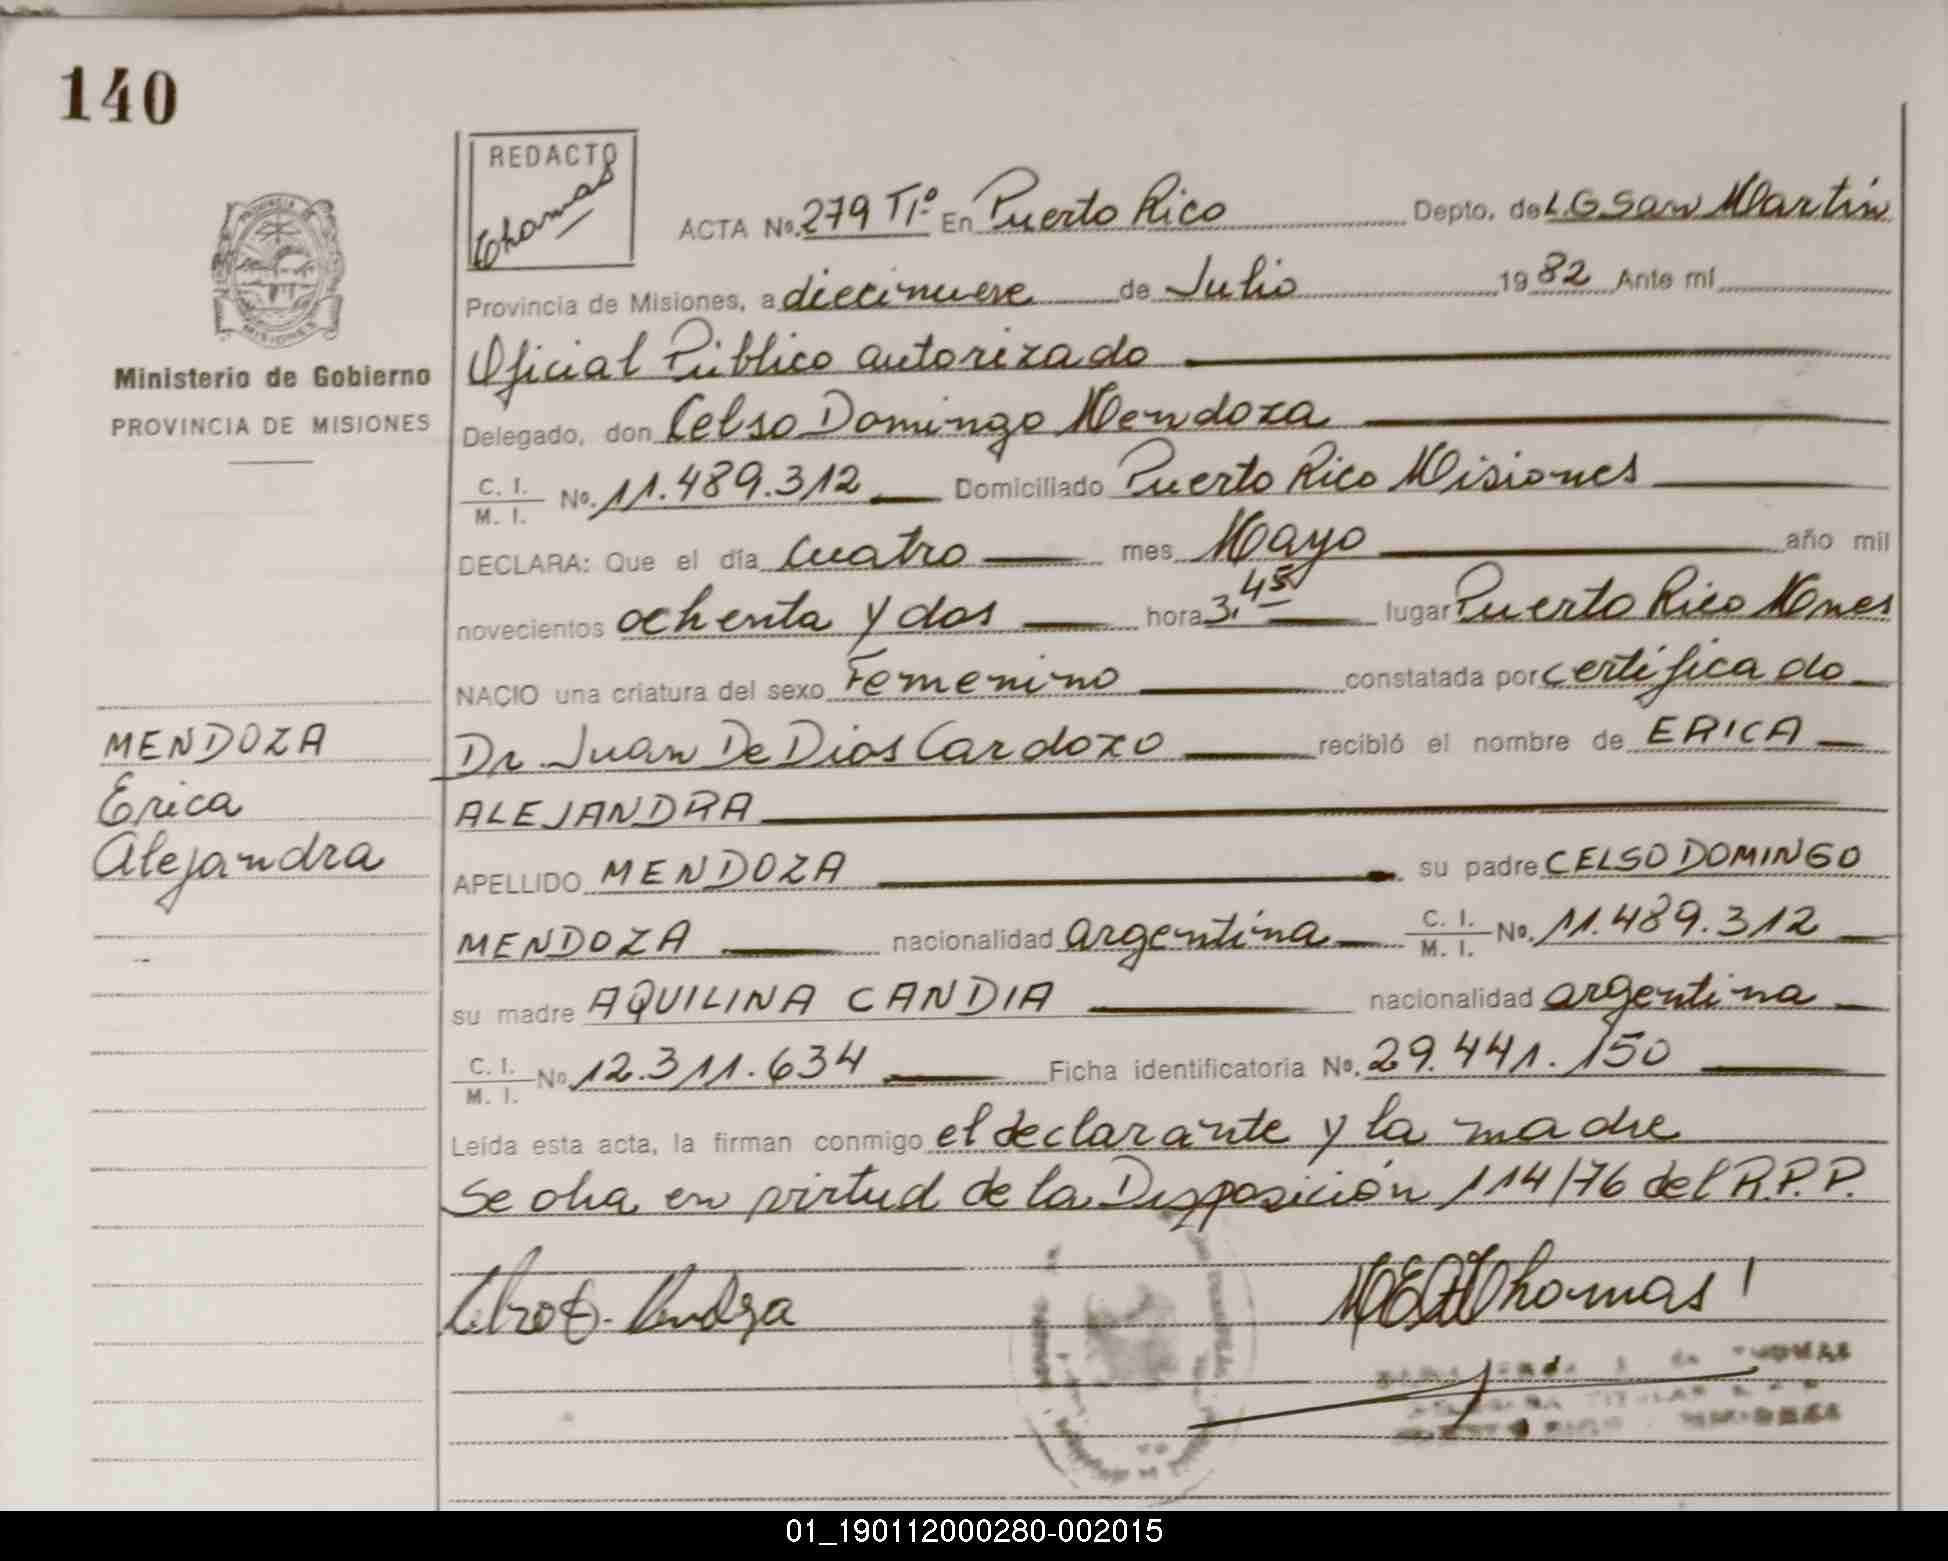 140
REDACTO
Thomas
ACTA No. 279 Tº En Puerto Rico Depto. de L.G San Martín
PROVINCIA DE MISIONES
Provincia de Misiones, a diecinueve de Julio 1982 Ante mí
Oficial Público autorizado
Ministerio de Gobierno
PROVINCIA DE MISIONES
Delegado, don Celso Domingo Mendoza
C. I. M. I. No. 11.489.312 Domiciliado Puerto Rico Misiones
DECLARA: Que el día cuatro mes Mayo año mil
novecientos ochenta y dos hora 3,45 lugar Puerto Rico Mnes
NACIO una criatura del sexo Femenino constatada por certificado
MENDOZA
Erica
Alejandra
Dr. Juan De Dios Cardozo recibió el nombre de ERICA
ALEJANDRA
APELLIDO MENDOZA su padre CELSO DOMINGO
MENDOZA nacionalidad argentina C. I. M. I. No. 11.489.312
su madre AQUILINA CANDIA nacionalidad argentina
C. I. M. I. No 12.311.634 Ficha identificatoria No. 29.441.150
Leída esta acta, la firman conmigo el declarante y la madre
se en virtud de la Disposición 114/76 del R.P.P.
Mendoza
Thomas
THOMAS
TITULAR
PUERTO RICO MISIONES
01_190112000280-002015